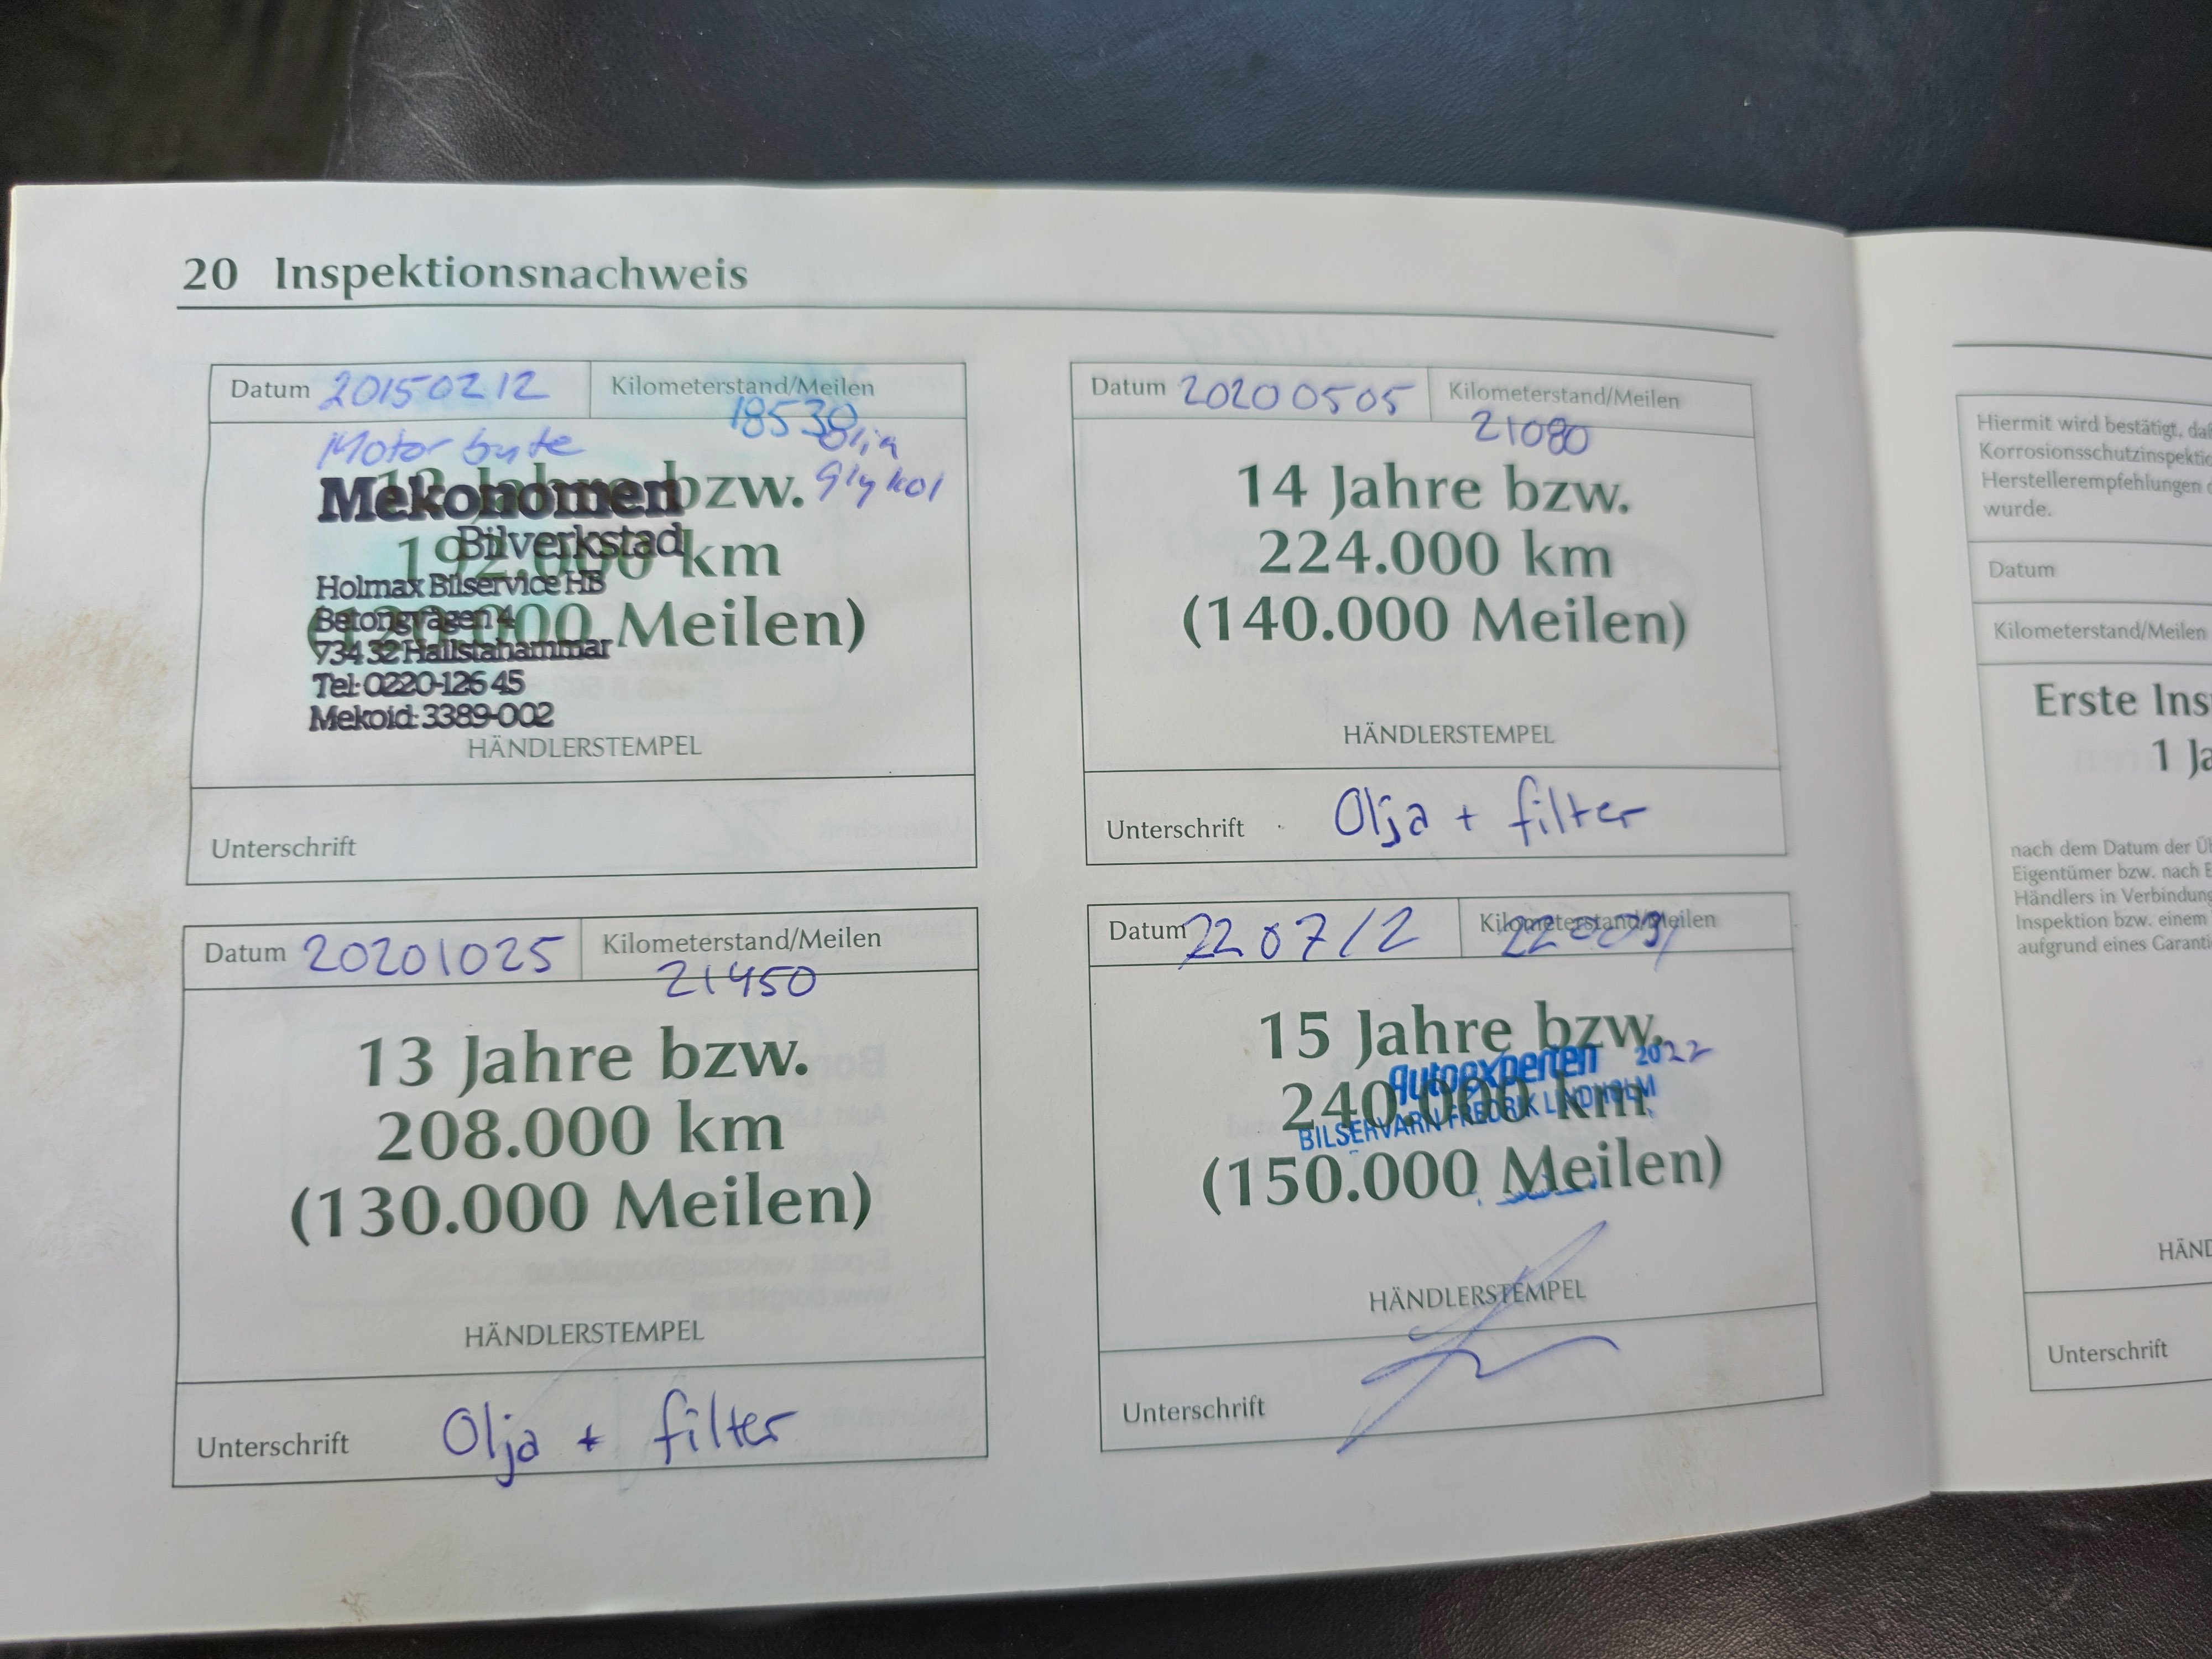 20 Inspektionsnachweis
Datum 20150212
Kilometerstand/Meilen
18530
Motor byte
Olja
Glykol
12 Jahre bzw.
192.000 km
(120.000 Meilen)
Mekonomen
Bilverkstad
Holmax Bilservice HB
Betongvägen 4
734 32 Hallstahammar
Tel: 0220-126 45
Mekoid: 3389-002
HÄNDLERSTEMPEL
Unterschrift
Datum 20200505
Kilometerstand/Meilen
21080
14 Jahre bzw.
224.000 km
(140.000 Meilen)
HÄNDLERSTEMPEL
Unterschrift Olja + filter
Datum 20201025
Kilometerstand/Meilen
21450
13 Jahre bzw.
208.000 km
(130.000 Meilen)
HÄNDLERSTEMPEL
Unterschrift Olja + filter
Datum 220712
Kilometerstand/Meilen
15 Jahre bzw.
240.000 km
(150.000 Meilen)
Autoexperten 2022
BILSERVARN FREDRIK LINDHOLM
HÄNDLERSTEMPEL
Unterschrift
Hiermit wird bestätigt, daß
Korrosionsschutzinspektio
Herstellerempfehlungen d
wurde.
Datum
Kilometerstand/Meilen
Erste Ins
1 Ja
nach dem Datum der Üb
Eigentümer bzw. nach E
Händlers in Verbindung
Inspektion bzw. einem
aufgrund eines Garanti
HÄND
Unterschrift